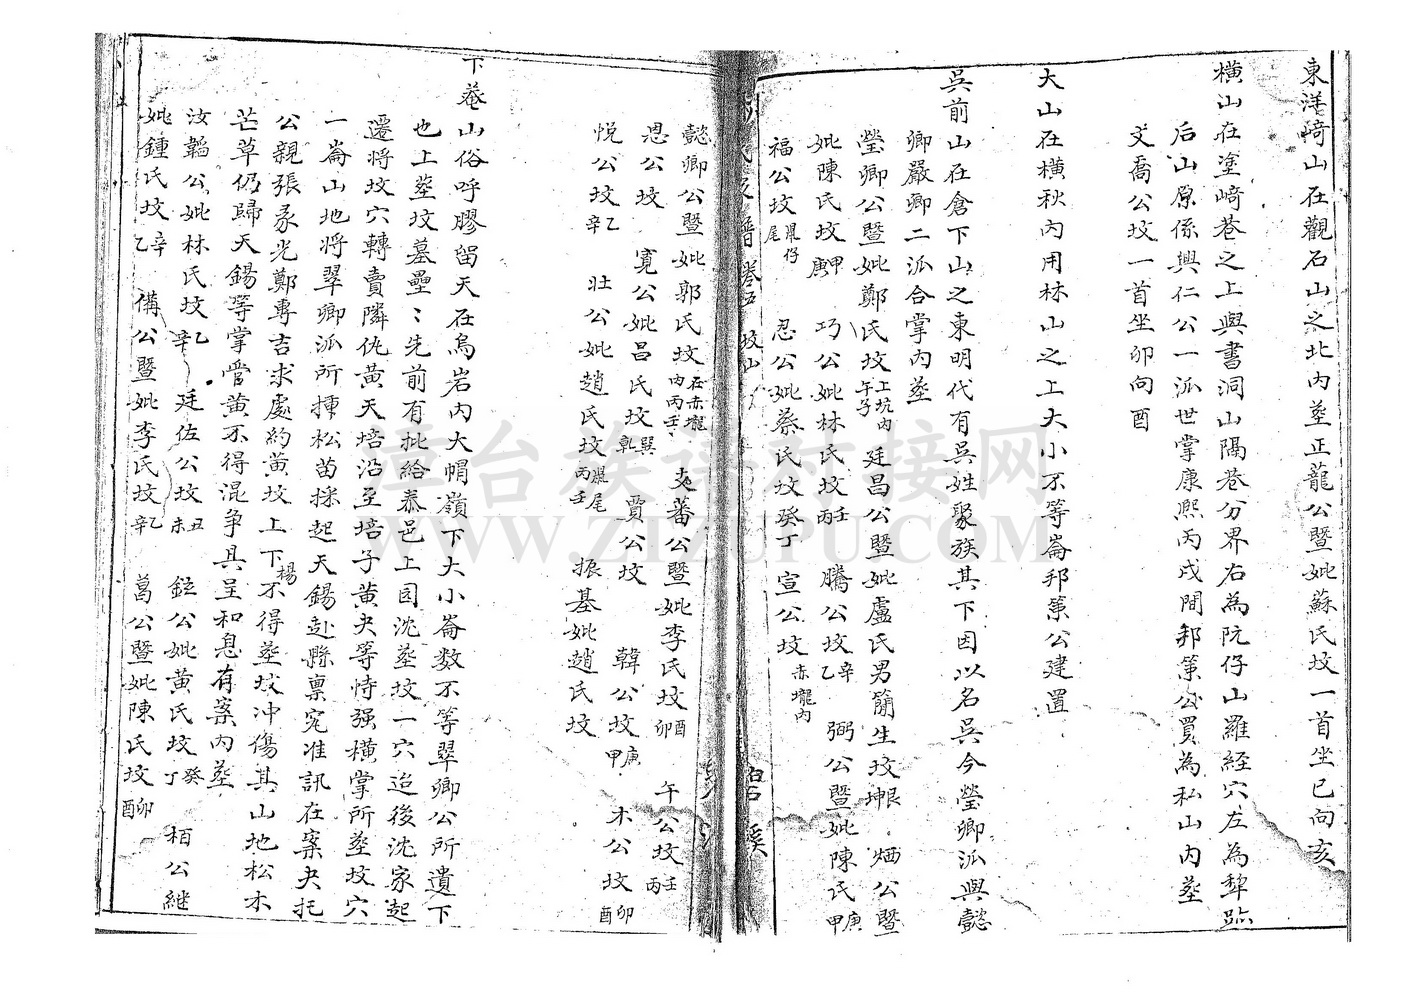 東洋崎山在觀石山之北內塟正龍公暨妣蘇氏坟一首坐巳向亥
橫山在塗崎巷之上與書洞山隔巷分界右為阮仔山羅經穴左為犁
后山原係興仁公一派世掌康熙丙戌間邦策公買為私山內塟
文喬公坟一首坐卯向酉
大山在橫秋內用林山之上大小不等崙邦策公建置
吳前山在倉下山之東明代有吳姓聚族其下因以名吳今瑩卿派與懿
卿嚴卿二派合掌內塟
瑩卿公暨妣鄭氏坟午子上坑內 廷昌公暨妣盧氏男簡生坟坤艮 炳公暨
妣陳氏坟庚甲 巧公妣林氏坟丙壬 騰公坟乙辛 弼公暨妣陳氏甲庚
福公坟尾鼠仔 忍公妣蔡氏坟癸丁 宣公坟赤壠內
卷五 坟山
碧溪
懿卿公暨妣郭氏坟內丙壬在赤壠 蕃公暨妣李氏坟卯酉 午公坟丙壬
恩公坟 寬公妣呂氏坟乾巽 賈公坟 韓公坟甲庚 木公坟酉卯
悅公坟辛乙 壯公妣趙氏坟丙壬鼠尾 振基妣趙氏坟
下菴山俗呼膠留天在烏岩內大帽嶺下大小崙数不等翠卿公所遺下
也上塟坟墓壘〻先前有批給泰邑上圓沈塟坟一穴迨後沈家起
遷將坟穴轉賣隣仇黃天培沿至培子黃夬等恃强橫掌所塟坟穴
一崙山地將翠卿派所插松苗採起天錫赴縣禀究准訊在案夬托
公親張彖光鄭專吉求處約黃坟上下楊不得塟坟冲傷其山地松木
芒草仍歸天錫等掌管黃不得混争具呈和息有案內塟
汝韜公妣林氏坟辛乙 廷佐公坟未丑 鉉公妣黃氏坟丁癸 栢公継
妣鍾氏坟乙辛 備公暨妣李氏坟辛乙 菖公暨妣陳氏坟酉卯